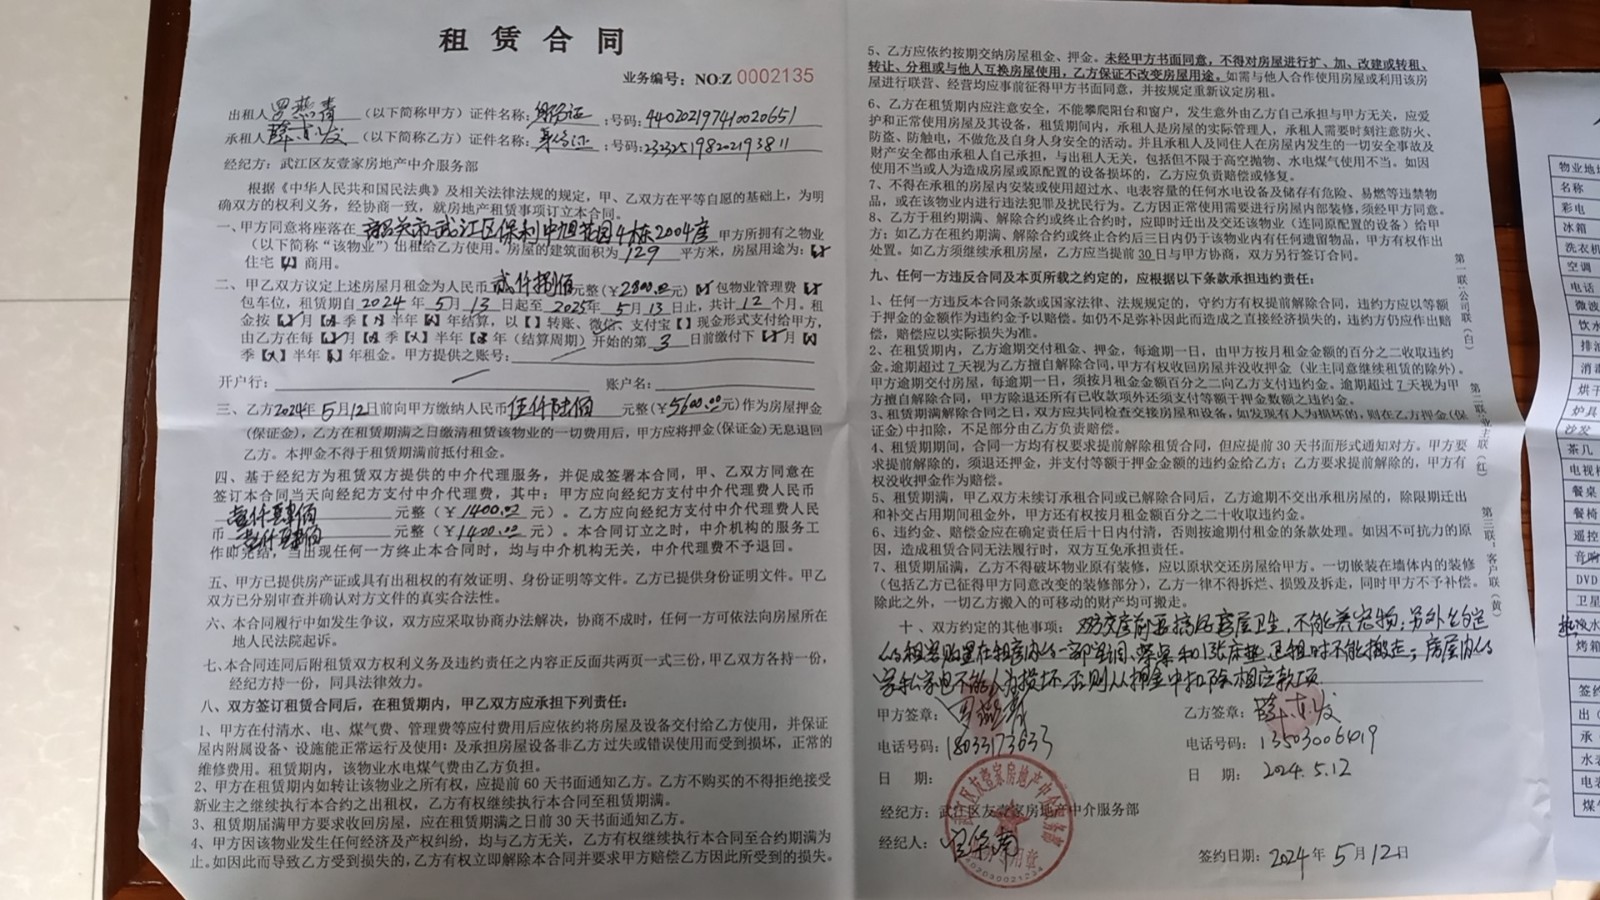 租赁合同
业务编号：NO:Z 0002135
出租人罗燕青（以下简称甲方）证件名称：身份证；号码：440202197410020651
承租人（以下简称乙方）证件名称：身份证；号码：232325198202193811
经纪方：武江区友壹家房地产中介服务部
根据《中华人民共和国民法典》及相关法律法规的规定，甲、乙双方在平等自愿的基础上，为明
确双方的权利义务，经协商一致，就房地产租赁事项订立本合同。
一、甲方同意将座落在 韶关市武江区保利中旭花园4栋2004房 甲方所拥有之物业
（以下简称“该物业”）出租给乙方使用。房屋的建筑面积为 129 平方米，房屋用途为：【✓】
住宅【】商用。
二、甲乙双方议定上述房屋月租金为人民币 贰仟捌佰元整（￥2800.00元）【✓】包物业管理费【】
包车位，租赁期自 2024 年 5 月 13 日起至 2025 年 5 月 13 日止，共计 12 个月。租
金按【✓】月【】季【】半年【】年结算，以【】转账、微信、支付宝【】现金形式支付给甲方，
由乙方在每【✓】月【】季【】半年【】年（结算周期）开始的第 3 日前缴付下【✓】月【】
季【】半年【】年租金。甲方提供之账号：
开户行： 账户名：
三、乙方2024年5月12日前向甲方缴纳人民币 伍仟陆佰 元整（￥5600.00元）作为房屋押金
（保证金），乙方在租赁期满之日缴清租赁该物业的一切费用后，甲方应将押金（保证金）无息退回
乙方。本押金不得于租赁期满前抵付租金。
四、基于经纪方为租赁双方提供的中介代理服务，并促成签署本合同，甲、乙双方同意在
签订本合同当天向经纪方支付中介代理费，其中：甲方应向经纪方支付中介代理费人民币
壹仟肆佰 元整（￥1400.00 元）。乙方应向经纪方支付中介代理费人民
币 壹仟肆佰 元整（￥1400.00 元）。本合同订立之时，中介机构的服务工
作即完结，当出现任何一方终止本合同时，均与中介机构无关，中介代理费不予退回。
五、甲方已提供房产证或具有出租权的有效证明、身份证明等文件。乙方已提供身份证明文件。甲乙
双方已分别审查并确认对方文件的真实合法性。
六、本合同履行中如发生争议，双方应采取协商办法解决，协商不成时，任何一方可依法向房屋所在
地人民法院起诉。
七、本合同连同后附租赁双方权利义务及违约责任之内容正反面共两页一式三份，甲乙双方各持一份，
经纪方持一份，同具法律效力。
八、双方签订租赁合同后，在租赁期内，甲乙双方应承担下列责任：
1、甲方在付清水、电、煤气费、管理费等应付费用后应依约将房屋及设备交付给乙方使用，并保证
屋内附属设备、设施能正常运行及使用；及承担房屋设备非乙方过失或错误使用而受到损坏，正常的
维修费用。租赁期内，该物业水电煤气费由乙方负担。
2、甲方在租赁期内如转让该物业之所有权，应提前 60 天书面通知乙方。乙方不购买的不得拒绝接受
新业主之继续执行本合约之出租权，乙方有权继续执行本合同至租赁期满。
3、租赁期届满甲方要求收回房屋，应在租赁期满之日前 30 天书面通知乙方。
4、甲方因该物业发生任何经济及产权纠纷，均与乙方无关，乙方有权继续执行本合同至合约期满为
止。如因此而导致乙方受到损失的，乙方有权立即解除本合同并要求甲方赔偿乙方因此所受到的损失。
5、乙方应依约按期交纳房屋租金、押金。未经甲方书面同意，不得对房屋进行扩、加、改建或转租、
转让、分租或与他人互换房屋使用，乙方保证不改变房屋用途。如需与他人合作使用房屋或利用该房
屋进行联营、经营均应事前征得甲方书面同意，并按规定重新议定房租。
6、乙方在租赁期内应注意安全，不能攀爬阳台和窗户，发生意外由乙方自己承担与甲方无关，应爱
护和正常使用房屋及其设备，租赁期间内，承租人是房屋的实际管理人，承租人需要时刻注意防火、
防盗、防触电，不做危及自身人身安全的活动。并且承租人及同住人在房屋内发生的一切安全事故及
财产安全都由承租人自己承担，与出租人无关，包括但不限于高空抛物、水电煤气使用不当。如因
使用不当或人为造成房屋或原配置的设备损坏的，乙方应负责赔偿或修复。
7、不得在承租的房屋内安装或使用超过水、电表容量的任何水电设备及储存有危险、易燃等违禁物
品，或在该物业内进行违法犯罪及扰民行为。乙方因正常使用需要进行房屋内部装修，须经甲方同意。
8、乙方于租约期满、解除合约或终止合约时，应即时迁出及交还该物业（连同原配置的设备）给甲
方；如乙方在租约期满、解除合约或终止合约后三日内仍于该物业内有任何遗留物品，甲方有权作出
处置。如乙方须继续承租房屋，乙方应当提前 30 日与甲方协商，双方另行签订合同。
九、任何一方违反合同及本页所载之约定的，应根据以下条款承担违约责任：
1、任何一方违反本合同条款或国家法律、法规规定的，守约方有权提前解除合同，违约方应以等额
于押金的金额作为违约金予以赔偿。如仍不足弥补因此而造成之直接经济损失的，违约方仍应作出赔
偿，赔偿应以实际损失为准。
2、在租赁期内，乙方逾期交付租金、押金，每逾期一日，由甲方按月租金金额的百分之二收取违约
金。逾期超过 7 天视为乙方擅自解除合同，甲方有权收回房屋并没收押金（业主同意继续租赁的除外）。
甲方逾期交付房屋，每逾期一日，须按月租金金额百分之二向乙方支付违约金。逾期超过 7 天视为甲
方擅自解除合同，甲方除退还所有已收款项外还须支付等额于押金数额之违约金。
3、租赁期满解除合同之日，双方应共同检查交接房屋和设备，如发现有人为损坏的，则在乙方押金（保
证金）中扣除，不足部分由乙方负责赔偿。
4、租赁期期间，合同一方均有权要求提前解除租赁合同，但应提前 30 天书面形式通知对方。甲方要
求提前解除的，须退还押金，并支付等额于押金金额的违约金给乙方；乙方要求提前解除的，甲方有
权没收押金作为赔偿。
5、租赁期满，甲甲乙双方未续订承租合同或已解除合同后，乙方逾期不交出承租房屋的，除限期迁出
和补交占用期间租金外，甲方还有权按月租金百分之二十收取违约金。
6、违约金、赔偿金应在确定责任后十日内付清，否则按逾期付租金的条款处理。如因不可抗力的原
因，造成租赁合同无法履行时，双方互免承担责任。
7、租赁期届满，乙方不得破坏物业原有装修，应以原状交还房屋给甲方。一切嵌装在墙体内的装修
（包括乙方已征得甲方同意改变的装修部分），乙方一律不得拆烂、损毁及拆走，同时甲方不予补偿。
除此之外，一切乙方搬入的可移动的财产均可搬走。
十、双方约定的其他事项：双方交房前要搞好房屋卫生，不能养宠物；另外约定
的租客购置在租房内的一部空调、餐桌和1张床垫退租时不能搬走；房屋内的
家私家电不能人为损坏否则从押金中扣除相应款项
甲方签章：罗燕青
乙方签章：
电话号码：18033173633
电话号码：13503006419
日 期：
日 期：2024.5.12
经纪方：武江区友壹家房地产中介服务部
经纪人：
签约日期：2024年5月12日
第一联：公司联（白）
第二联：业主联（红）
第三联：客户联（黄）
物业地
名称
彩电
冰箱
洗衣机
空调
电话
微波
饮水
排油
消毒
烘干
炉具
沙发
茶几
电视柜
餐桌
餐椅
遥控
音响
DVD
卫星
热水
烤箱
签约
出（
承（
水表
电表
煤气